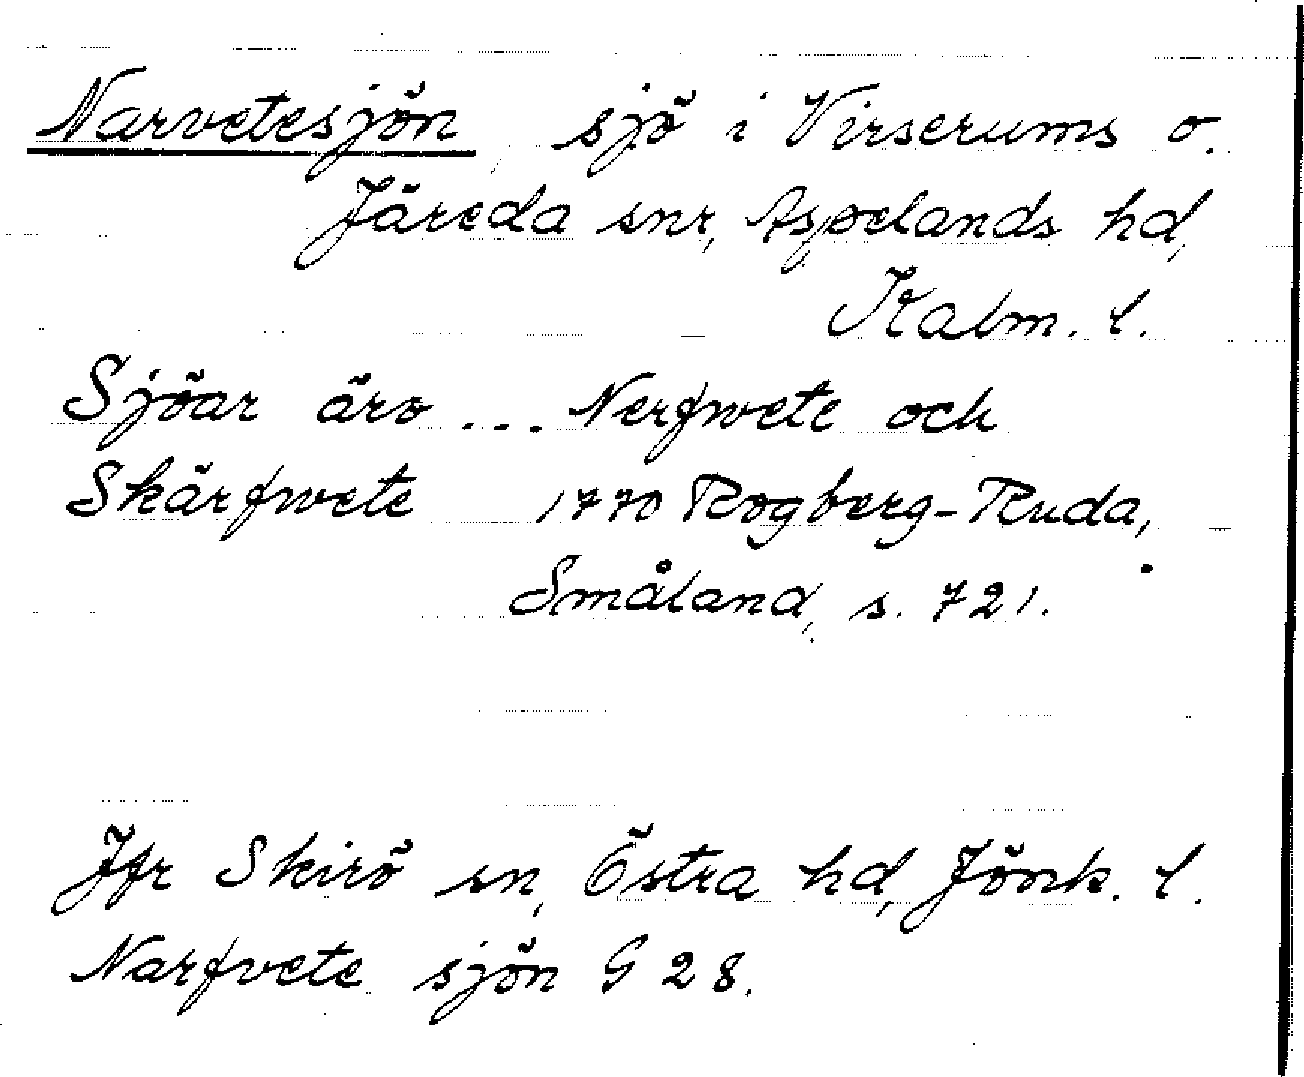 Narvetesjön, sjö i Virserums o.
Järeda snr, Aspelands hd,
Kalm. l.
Sjöar äro ... Nerfwete och
Skärfwete 1770 Rogberg-Ruda,
Småland, s. 721.
Jfr Skirö sn, Östra hd, Jönk. l.
Narfvete sjön G 28.